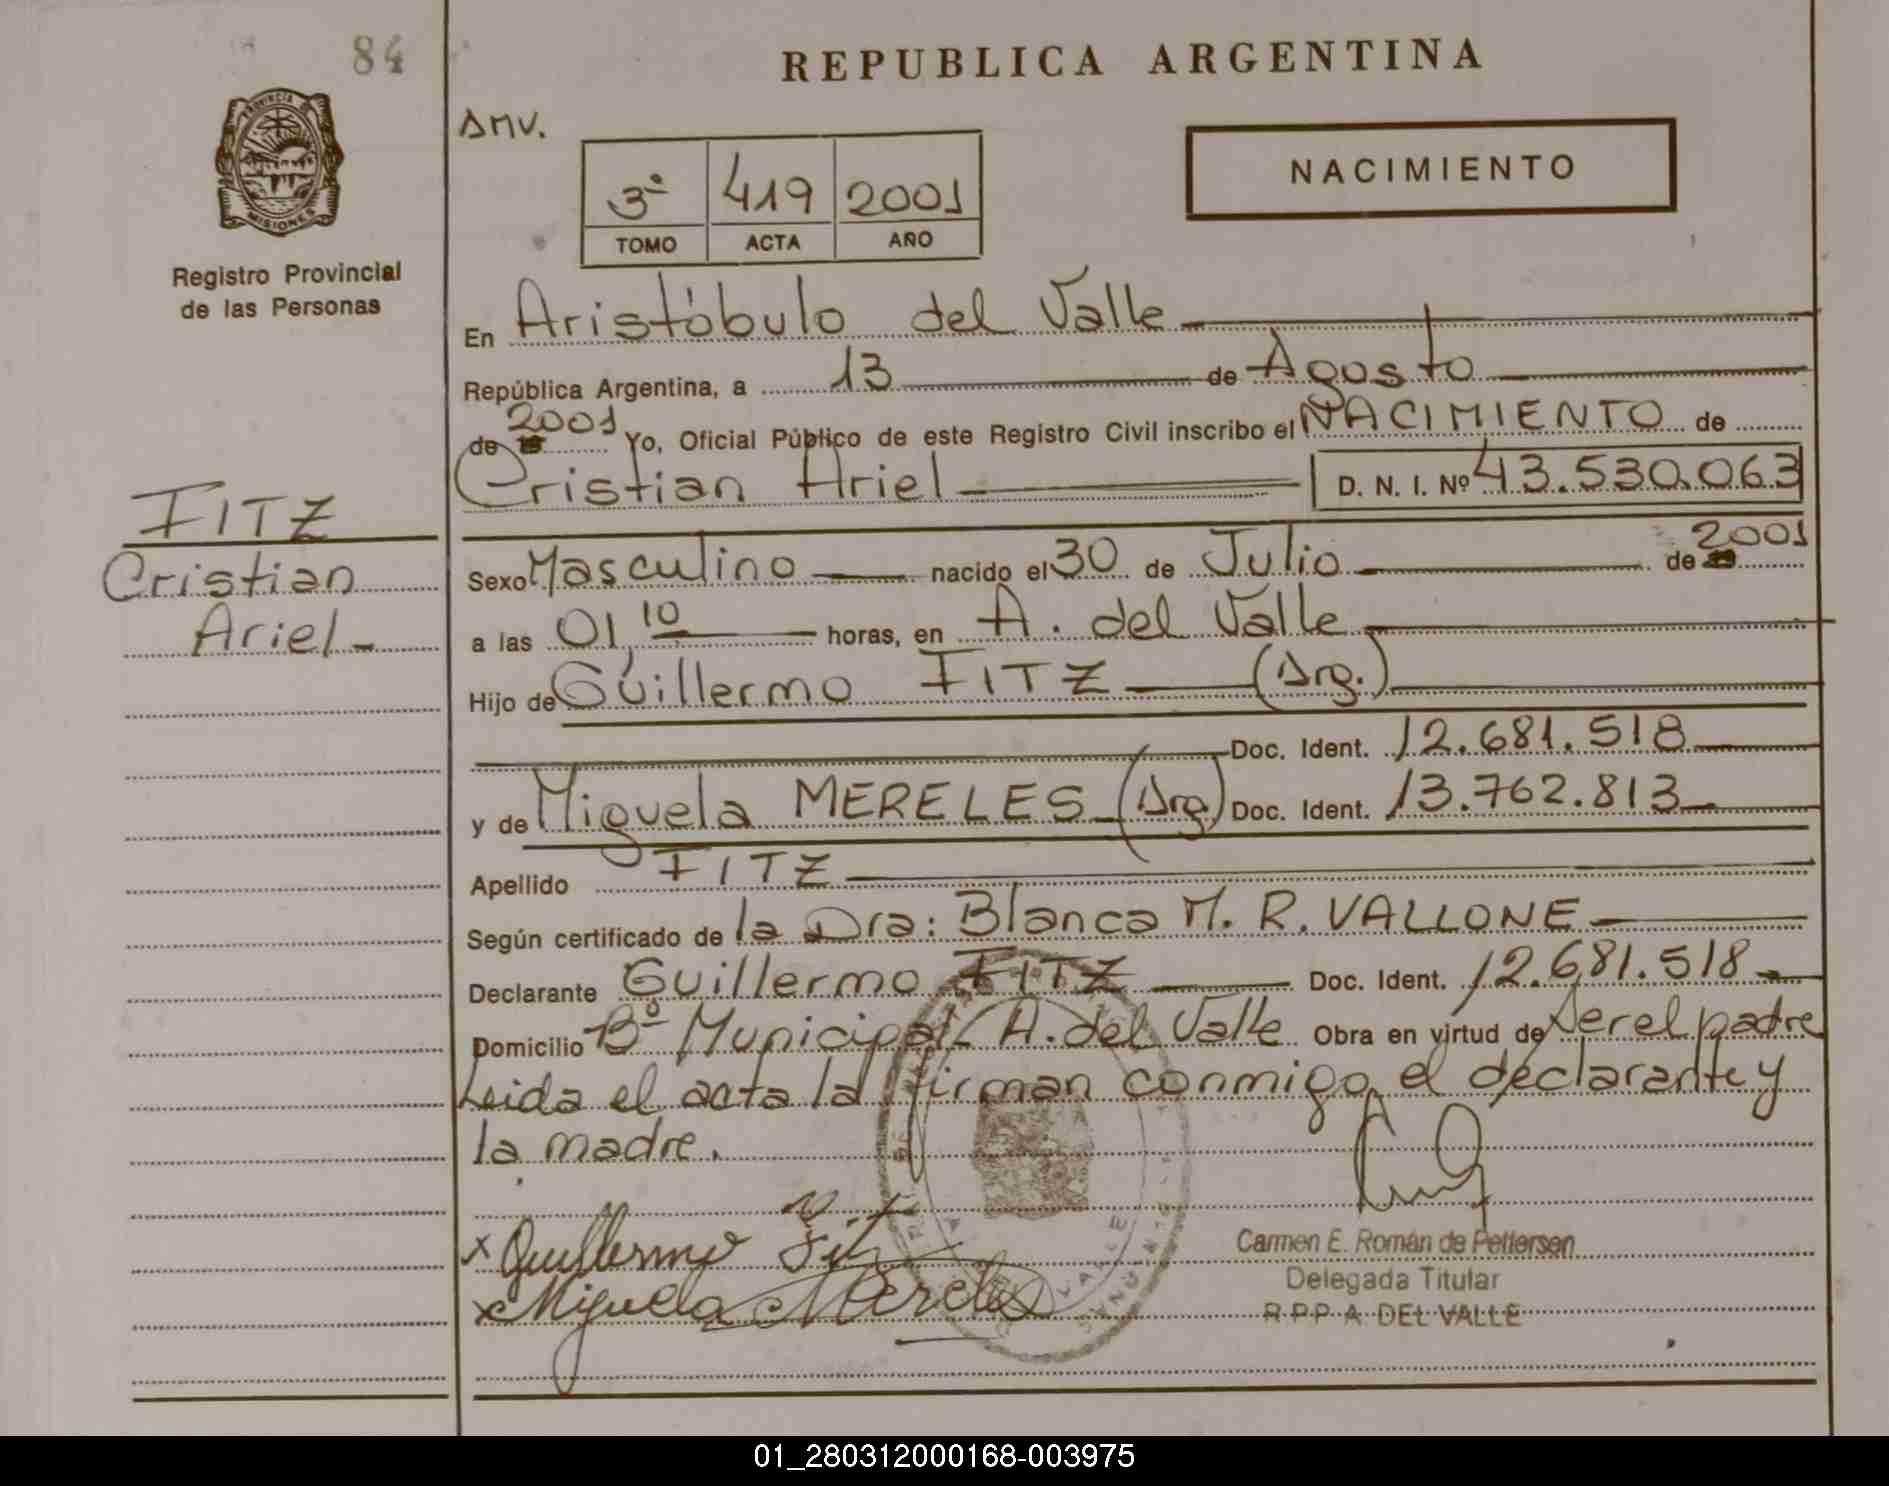 84
REPUBLICA ARGENTINA
PROVINCIA DE
MISIONES
Registro Provincial
de las Personas
AMV.
3º 419 2001
TOMO ACTA AÑO
NACIMIENTO
En Aristóbulo del Valle
República Argentina, a 13 de Agosto
de 2001 Yo, Oficial Público de este Registro Civil inscribo el NACIMIENTO de
Cristian Ariel D. N. I. Nº 43.530.063
FITZ
Cristian
Ariel
Sexo Masculino nacido el 30 de Julio de 2001
a las 01,10 horas, en A. del Valle
Hijo de Guillermo FITZ (Arg.)
Doc. Ident. 12.681.518
y de Miguela MERELES (Arg) Doc. Ident. 13.762.813
Apellido FITZ
Según certificado de la Dra: Blanca M. R. VALLONE
Declarante Guillermo FITZ Doc. Ident. 12.681.518
Domicilio Bº Municipal A. del Valle Obra en virtud de ser el padre
Leida el acta la firman conmigo, el declarante y
la madre.
x Guillermo Fitz
x Miguela Mereles
Carmen E. Román de Pettersen
Delegada Titular
R.P.P. A. DEL VALLE
VALLE
01_280312000168-003975